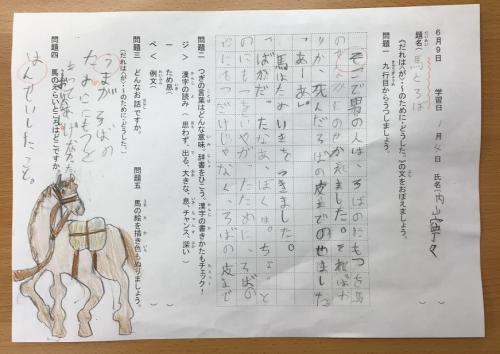 6月9日 学習日 月 4日 氏名 内山寧々
題名 馬とろば
《だれは(が)・~のために・どうした。》の文をおぼえましょう。
問題一 九行目からうつしましょう。
そこで男の人は、ろばのにもつを馬
ました。そればか
りか、死んだろばの皮までのせました
「あーあ。」
馬はためいきをつきました。
「ばかだったなあ、ぼくは。ちょっと
のにもつをいやがったために、ろばの
にもつだけじゃなく、ろばの皮まで
問題二 つぎの言葉はどんな意味。辞書をひこう。漢字の書きかたもチェック!
漢字の読み (思わず、出る、大きな、息、チャンス、深い)
ため息
例文
問題三 どんなお話ですか。
《だれは(が)・~のために・どうした。》
うまが ろばの
問題四 馬のえらいところはどこですか。
はんせいしたこと。
問題五 馬の絵を描き色もぬりましょう。